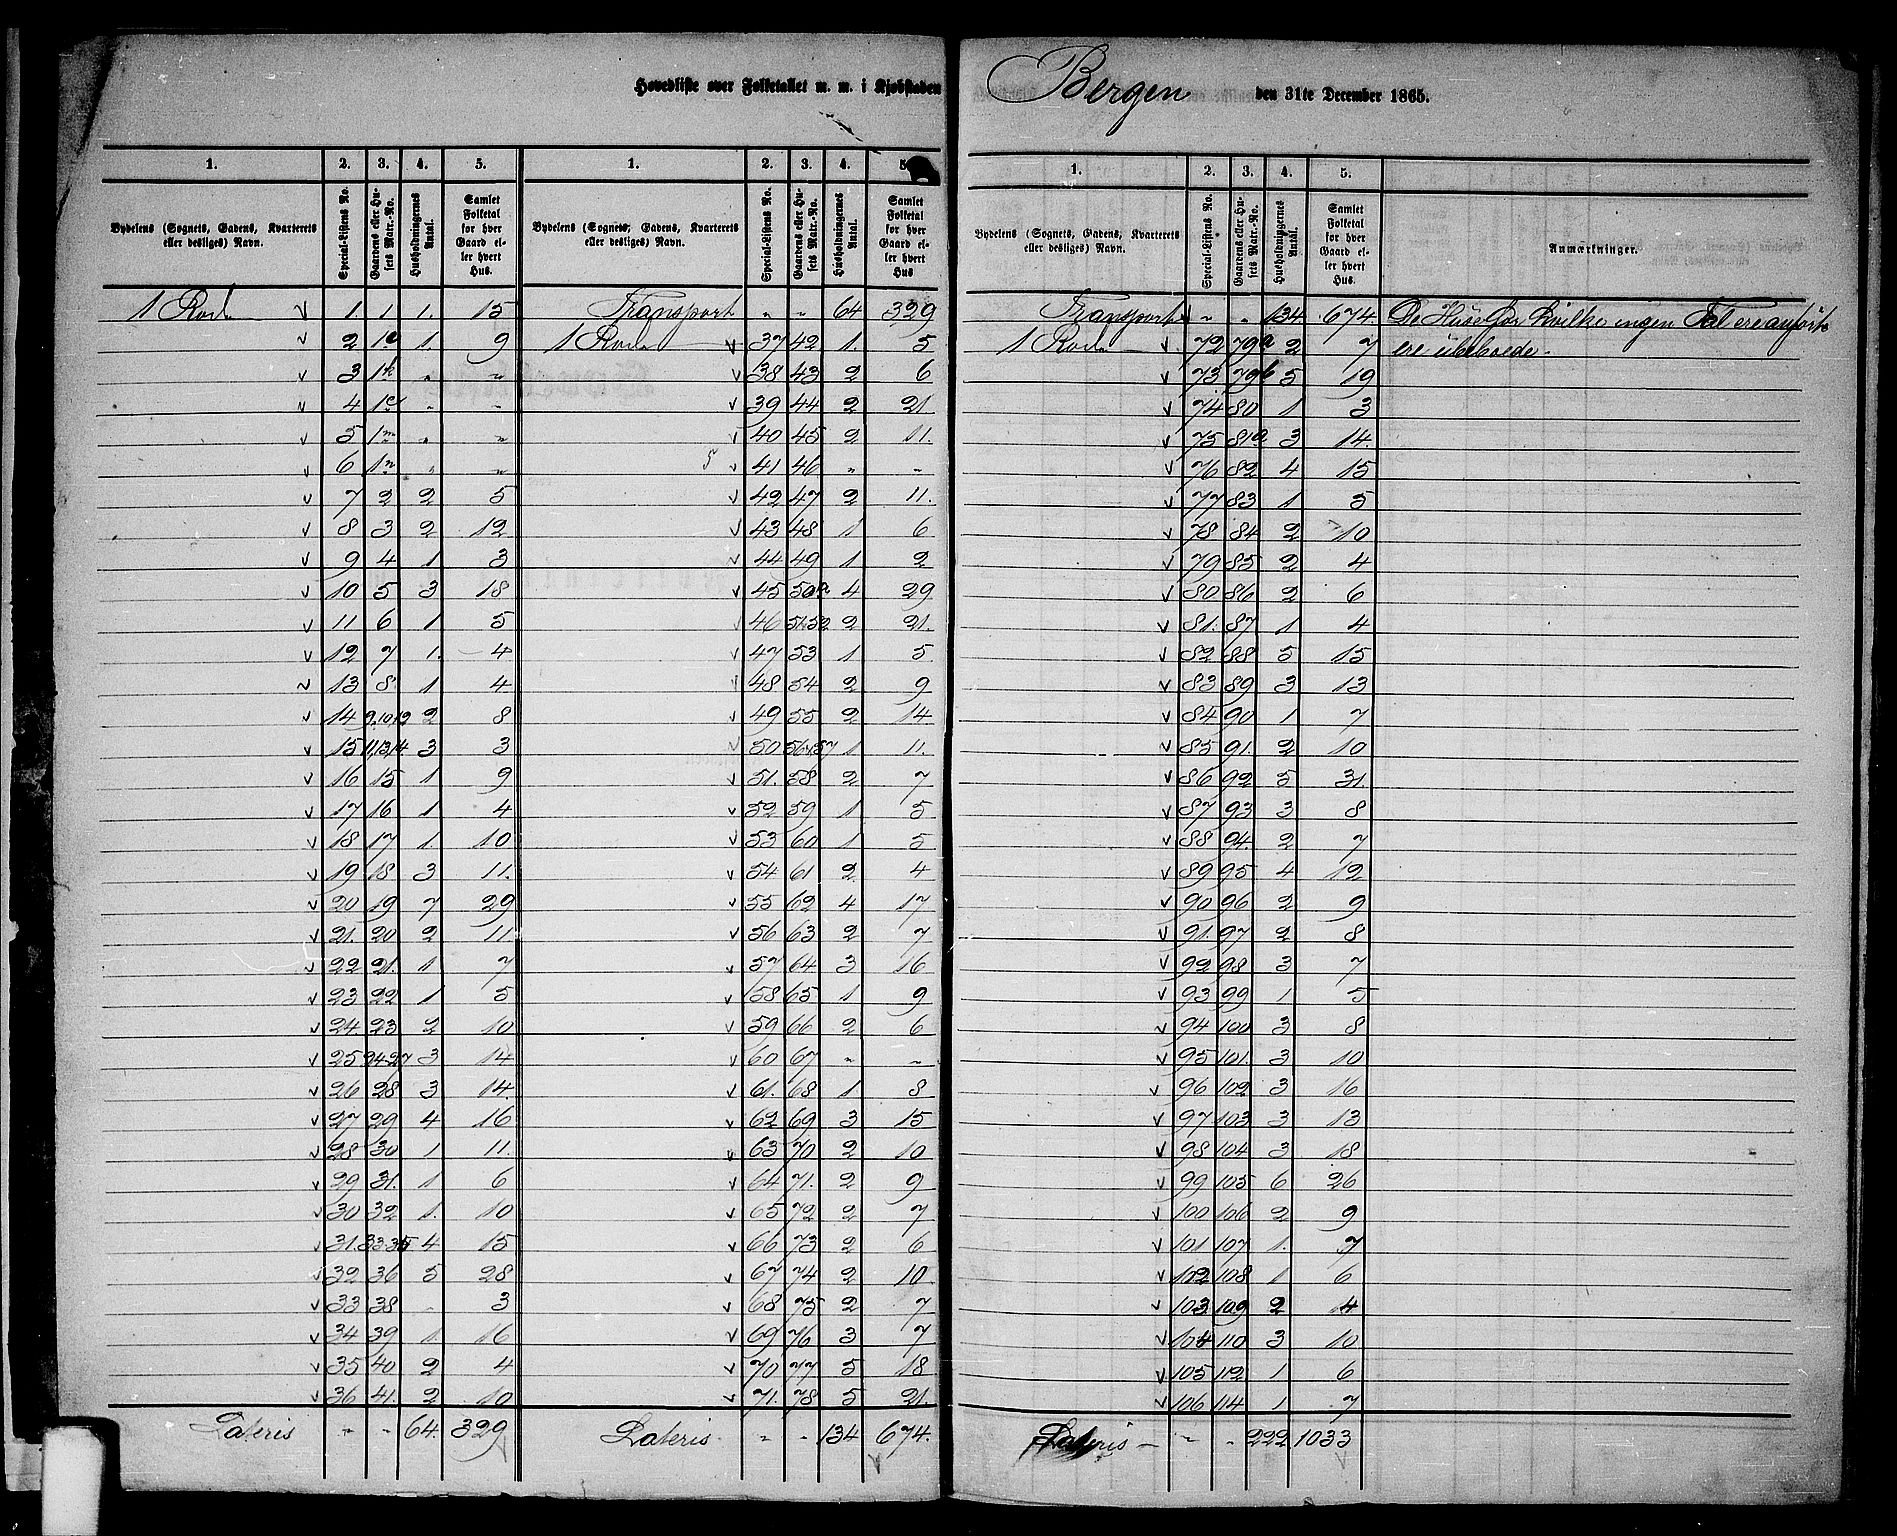 Hovedliste over Folketallet m. m. i Kjøbstaden Bergen den 31te December 1865.
1. 2. 3. 4. 5.
Bydelens (Sognets, Gadens, Kvarterets eller desliges) Navn. Special-Listens No. Gaardens eller Husets Matr.-No. Husholdningernes Antal. Samlet Folketal for hver Gaard eller hvert Hus.
1 Rode V 1. 1 1. 15
v 2 1a 1 9
v 3 1k „ „
v 4 1l „ „
v 5 1m „ „
v 6 1n „ „
v 7 2 2 5
v 8 3 2 12
v 9 4 1 3
v 10 5 3 18
v 11 6 1 5
v 12 7 1. 4
v 13 8 1 4
v 14 9.10.12 2 8
v 15 11,13,14 3 3
v 16 15 1 9
v 17 16 1 4
v 18 17 1. 10
v 19 18 3 11.
v 20 19 7 29
v 21. 20 2 11
v 22 21. 1 7
v 23 22 1 5
v 24 23 2 10
v 25 24-27 3 14
v 26 28 3 14.
v 27 29 4 16
v 28 30 1 11.
v 29 31. 1 6
v 30 32 1. 10
v 31. 33-35 4 15
v 32 36 5 28
v 33 38 „ 3
v 34 39 1 16
v 35 40 2 4
v 36 41. 2 10
Lateris „ „ 64. 329
1. 2. 3. 4. 5.
Bydelens (Sognets, Gadens, Kvarterets eller desliges) Navn. Special-Listens No. Gaardens eller Husets Matr.-No. Husholdningernes Antal. Samlet Folketal for hver Gaard eller hvert Hus
Transport „ „ 64 329
1 Rode v 37 42 1. 5
v 38 43 2 6
v 39 44 2 21
v 40 45 2 11.
5 v 41 46 „ „
v 42 47 2 11.
v 43 48 1 6
v 44 49 1 2
v 45 50a 4 29
v 46 51.52 2 21.
v 47 53 1 5
v 48 54 2 9
v 49 55 2 14
v 50 56.57 1 11.
v 51. 58 2 7
v 52 59 1. 5
v 53 60 1 5
v 54 61 2 4
v 55 62 4 17
v 56 63 2 7
v 57 64 3 16
v 58 65 1 9
v 59 66 2 6
v 60 67 „ „
v 61. 68 1 8
v 62 69 3 15
v 63 70 2 10
v 64 71. 2 9
v 65 72 2 7
v 66 73 2 6
v 67 74 2 10
v 68 75 2 7
v 69 76 3 7
v 70 77 5 18
v 71. 78 5 21.
Lateris „ „ 134 674.
1. 2. 3. 4. 5.
Bydelens (Sognets, Gadens, Kvarterets eller desliges) Navn. Special-Listens No. Gaardens eller Husets Matr.-No. Husholdningernes Antal. Samlet Folketal for hver Gaard eller hvert Hus. Anmærkninger.
Transport „ „ 134 674 De Huse for hvilke ingen Tal ere anførte
1 Rode v 72 79a 2 7 ere ubeboede.
v 73 79b 5 19
v 74 80 1 3
v 75 81a 3 14
v 76 82 4 15
v 77 83 1 5
v 78 84 2 10
v 79 85 2 4
v 80 86 2 6
v 81. 87 1 4
v 82 88 5 15
v 83 89 3 13
v 84 90 1 7
v 85 91. 2 10
v 86 92 5 31.
v 87 93 3 8
v 88 94. 2 7
v 89 95 4 12
v 90 96 2 9
v 91. 97 2 8
v 92 98 3 7
v 93 99 1 5
v 94 100 3 8
v 95 101. 3 10
v 96 102 3 16
v 97 103 3 13
v 98 104 3 18
v 99 105 6 26
v 100 106 2 9
v 101 107 1. 7
v 102 108 1 6
v 103 109 2 14
v 104 110 3 10
v 105 112 1 6
v 106 114 1 7
Lateris „ „ 222 1033